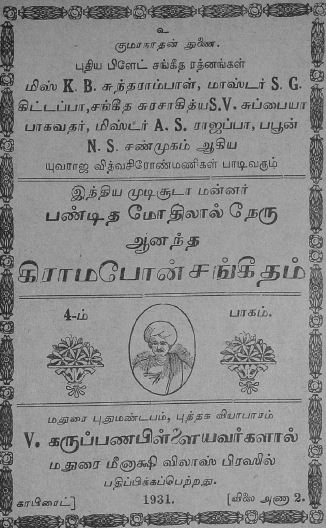 உ
குமாரநாதன் துணை.
புதிய பிளேட் சங்கீத ரத்னங்கள்
மிஸ் K. B. சுந்தராம்பாள், மாஸ்டர் S. G.
கிட்டப்பா, சங்கீத சுரசாகித்ய S.V. சுப்பையா
பாகவதர், மிஸ்டர் A. S. ராஜப்பா, பபூன்
N. S. சண்முகம் ஆகிய
யுவராஜ வித்வசிரோண்மணிகள் பாடிவரும்
இந்திய முடிசூடா மன்னர்
பண்டித மோதிலால் நேரு
ஆனந்த
கிராமபோன் சங்கீதம்
4-ம் பாகம்.
மதுரை புதுமண்டபம், புத்தக வியாபாரம்
V. கருப்பணபிள்ளையவர்களால்
மதுரை மீனாக்ஷி விலாஸ் பிரஸில்
பதிப்பிக்கப்பெற்றது.
காபிரைட்] 1931. [விலை அணா 2.